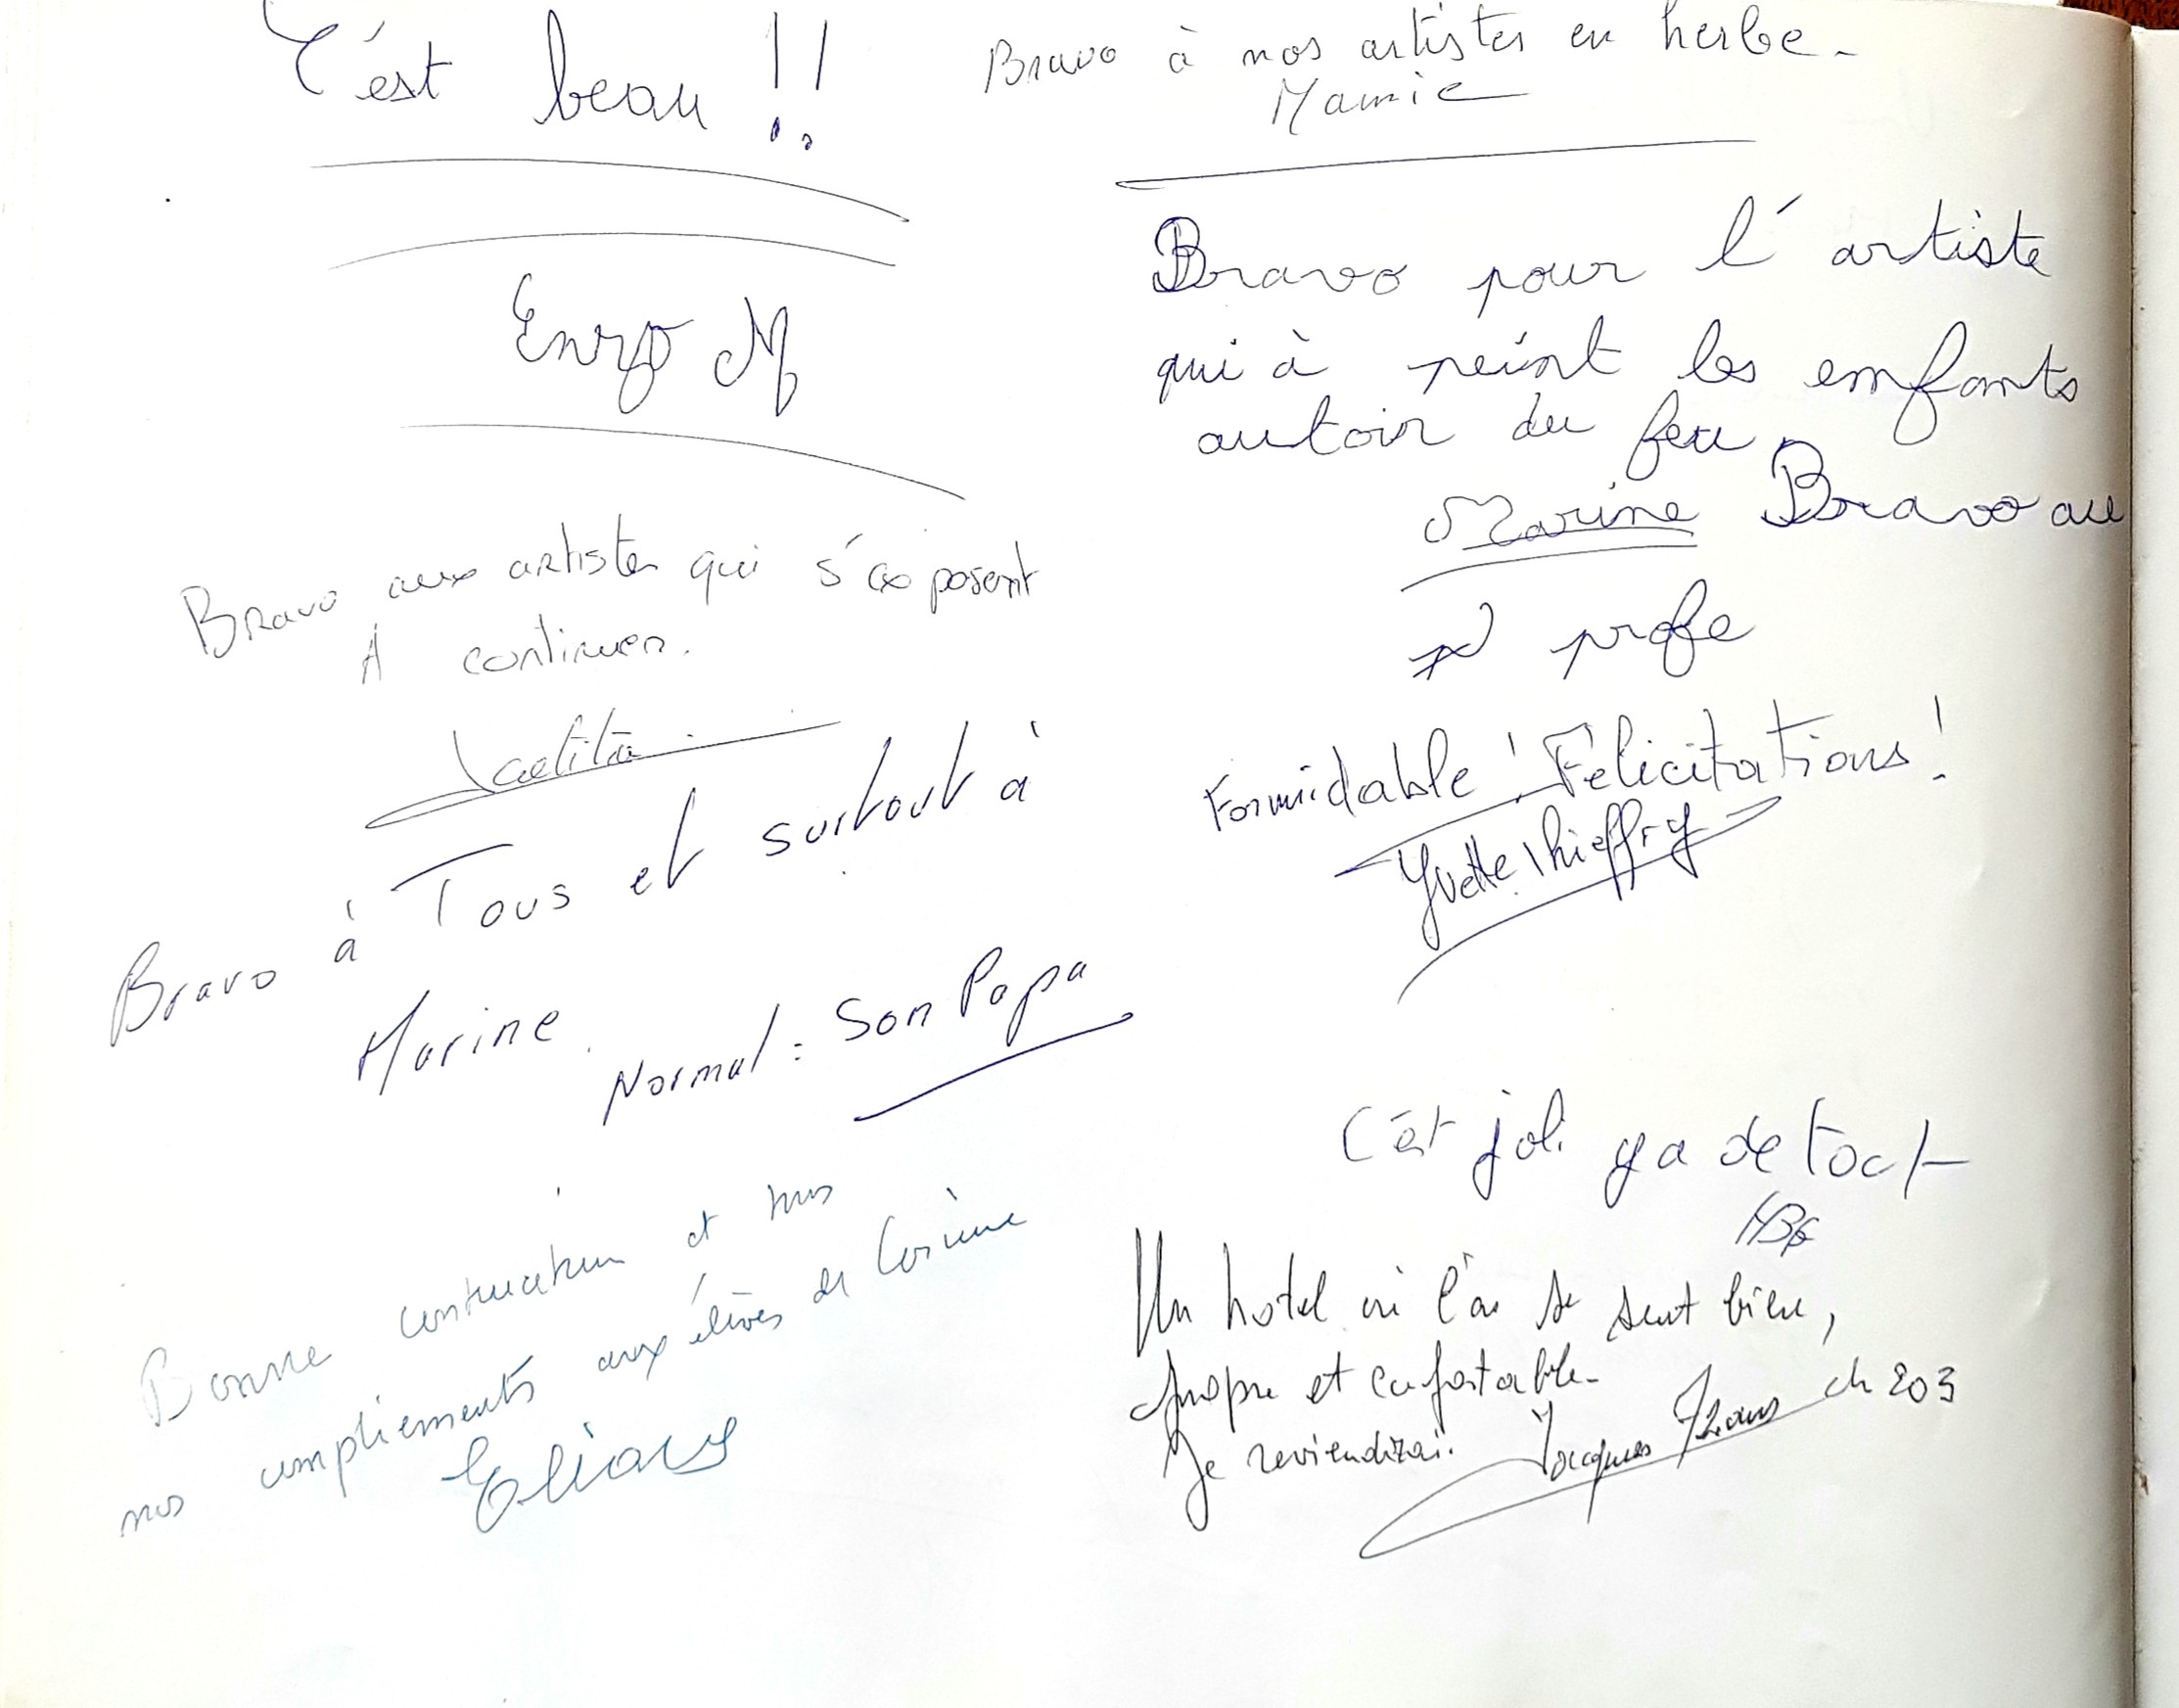 C'est beau !!
Enzo M
Bravo aux artistes qui s'exposent
A continuer.
Laetitia
Bravo à Tous et surtout à
Marine.
Normal : Son Papa
Bonne continuation et tous
nos compliements aux élèves de Corinne
Bravo à nos artistes en herbe -
Mamie
Bravo pour l'artiste
qui à peint les enfants
autoir du feu.
Marine Bravo au
profe
Formidable ! Félicitations !
Yvette Thieffry
C'est joli ya de tout
Un hotel où l'on se sent bien,
propre et confortable.
Je reviendrai. Jacques ch 203